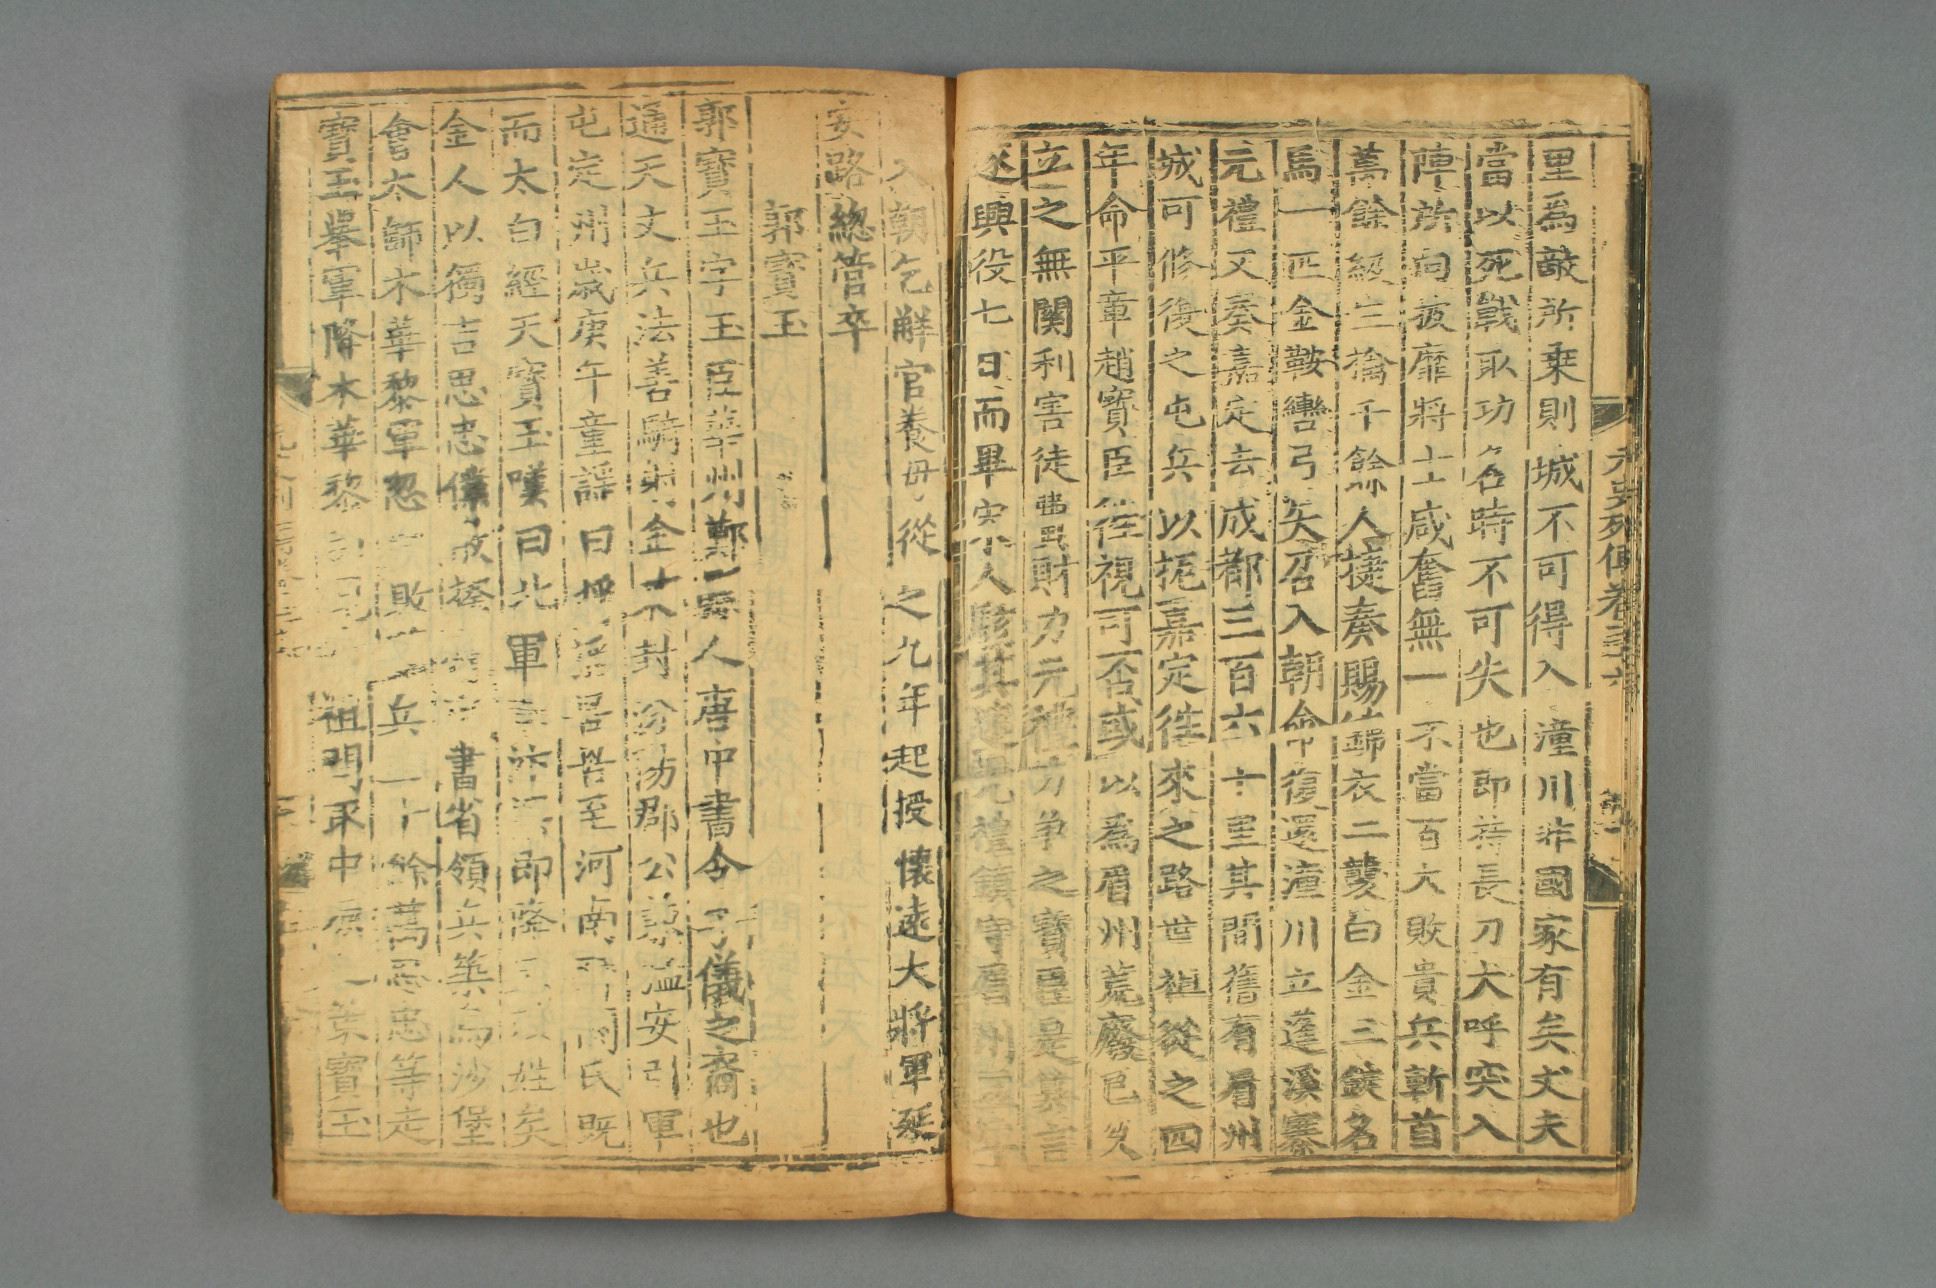 元史列傳卷三十六
里爲敵所乗則城不可得入潼川非國家有矣丈夫
當以死戰取功名時不可失也即持長刀大呼突入
陣所向披靡將士咸奮無一不當百大敗貴兵斬首
萬餘級生擒千餘人捷奏賜錦衣二襲白金三鋌名
馬一匹金鞍轡弓矢召入朝命復還潼川立蓬溪寨
元禮又奏嘉定去成都三百六十里其間舊有眉州
城可修復之屯兵以扼嘉定徃來之路世祖從之四
年命平章趙寶臣徃視可否或以爲眉州荒廢已久
立之無關利害徒費財力元禮力争之寶臣是其言
遂興役七日而畢宋人駭其速元禮鎮守眉州五年
入朝乞解官養母從之九年起授懷遠大將軍延
安路總管卒
郭寶玉
郭寶玉字玉臣華州鄭縣人唐中書令子儀之裔也
通天文兵法善騎射金末封汾陽郡公兼猛安引軍
屯定州歳庚午童謡曰搖搖罟罟至河南拜閼氏既
而太白經天寶玉嘆曰北軍南汴即降天改姓矣
金人以獨吉思忠僕散揆行書省領兵築烏沙堡
會太師木華黎軍忽至敗其兵三十餘萬思忠等走
寶玉舉軍降木華黎引見祖問取中原之策寶玉